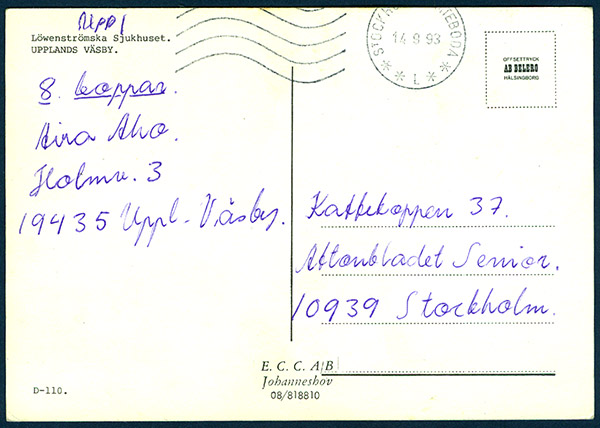 Uppl
Löwenströmska Sjukhuset.
UPPLANDS VÄSBY.
8. koppar.
Aira Aho.
Holmv. 3
19435 Uppl-Väsby.
14 9 93
* * L * *
OFFSETTRYCK
AB DELERO
HÄLSINGBORG
Kaffekoppen 37.
Aftonbladet Senior.
10939 Stockholm.
E. C. C. AB
Johanneshov
08/818810
D-110.